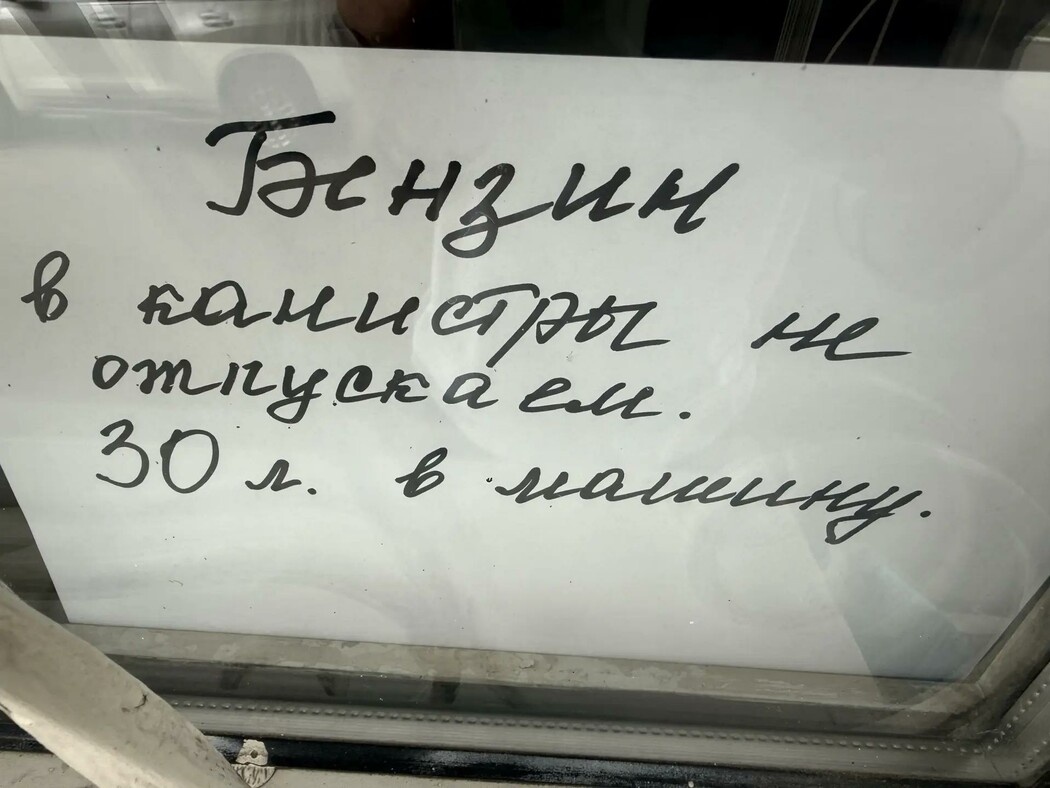 Бензин
в канистры не
отпускаем.
30 л. в машину.